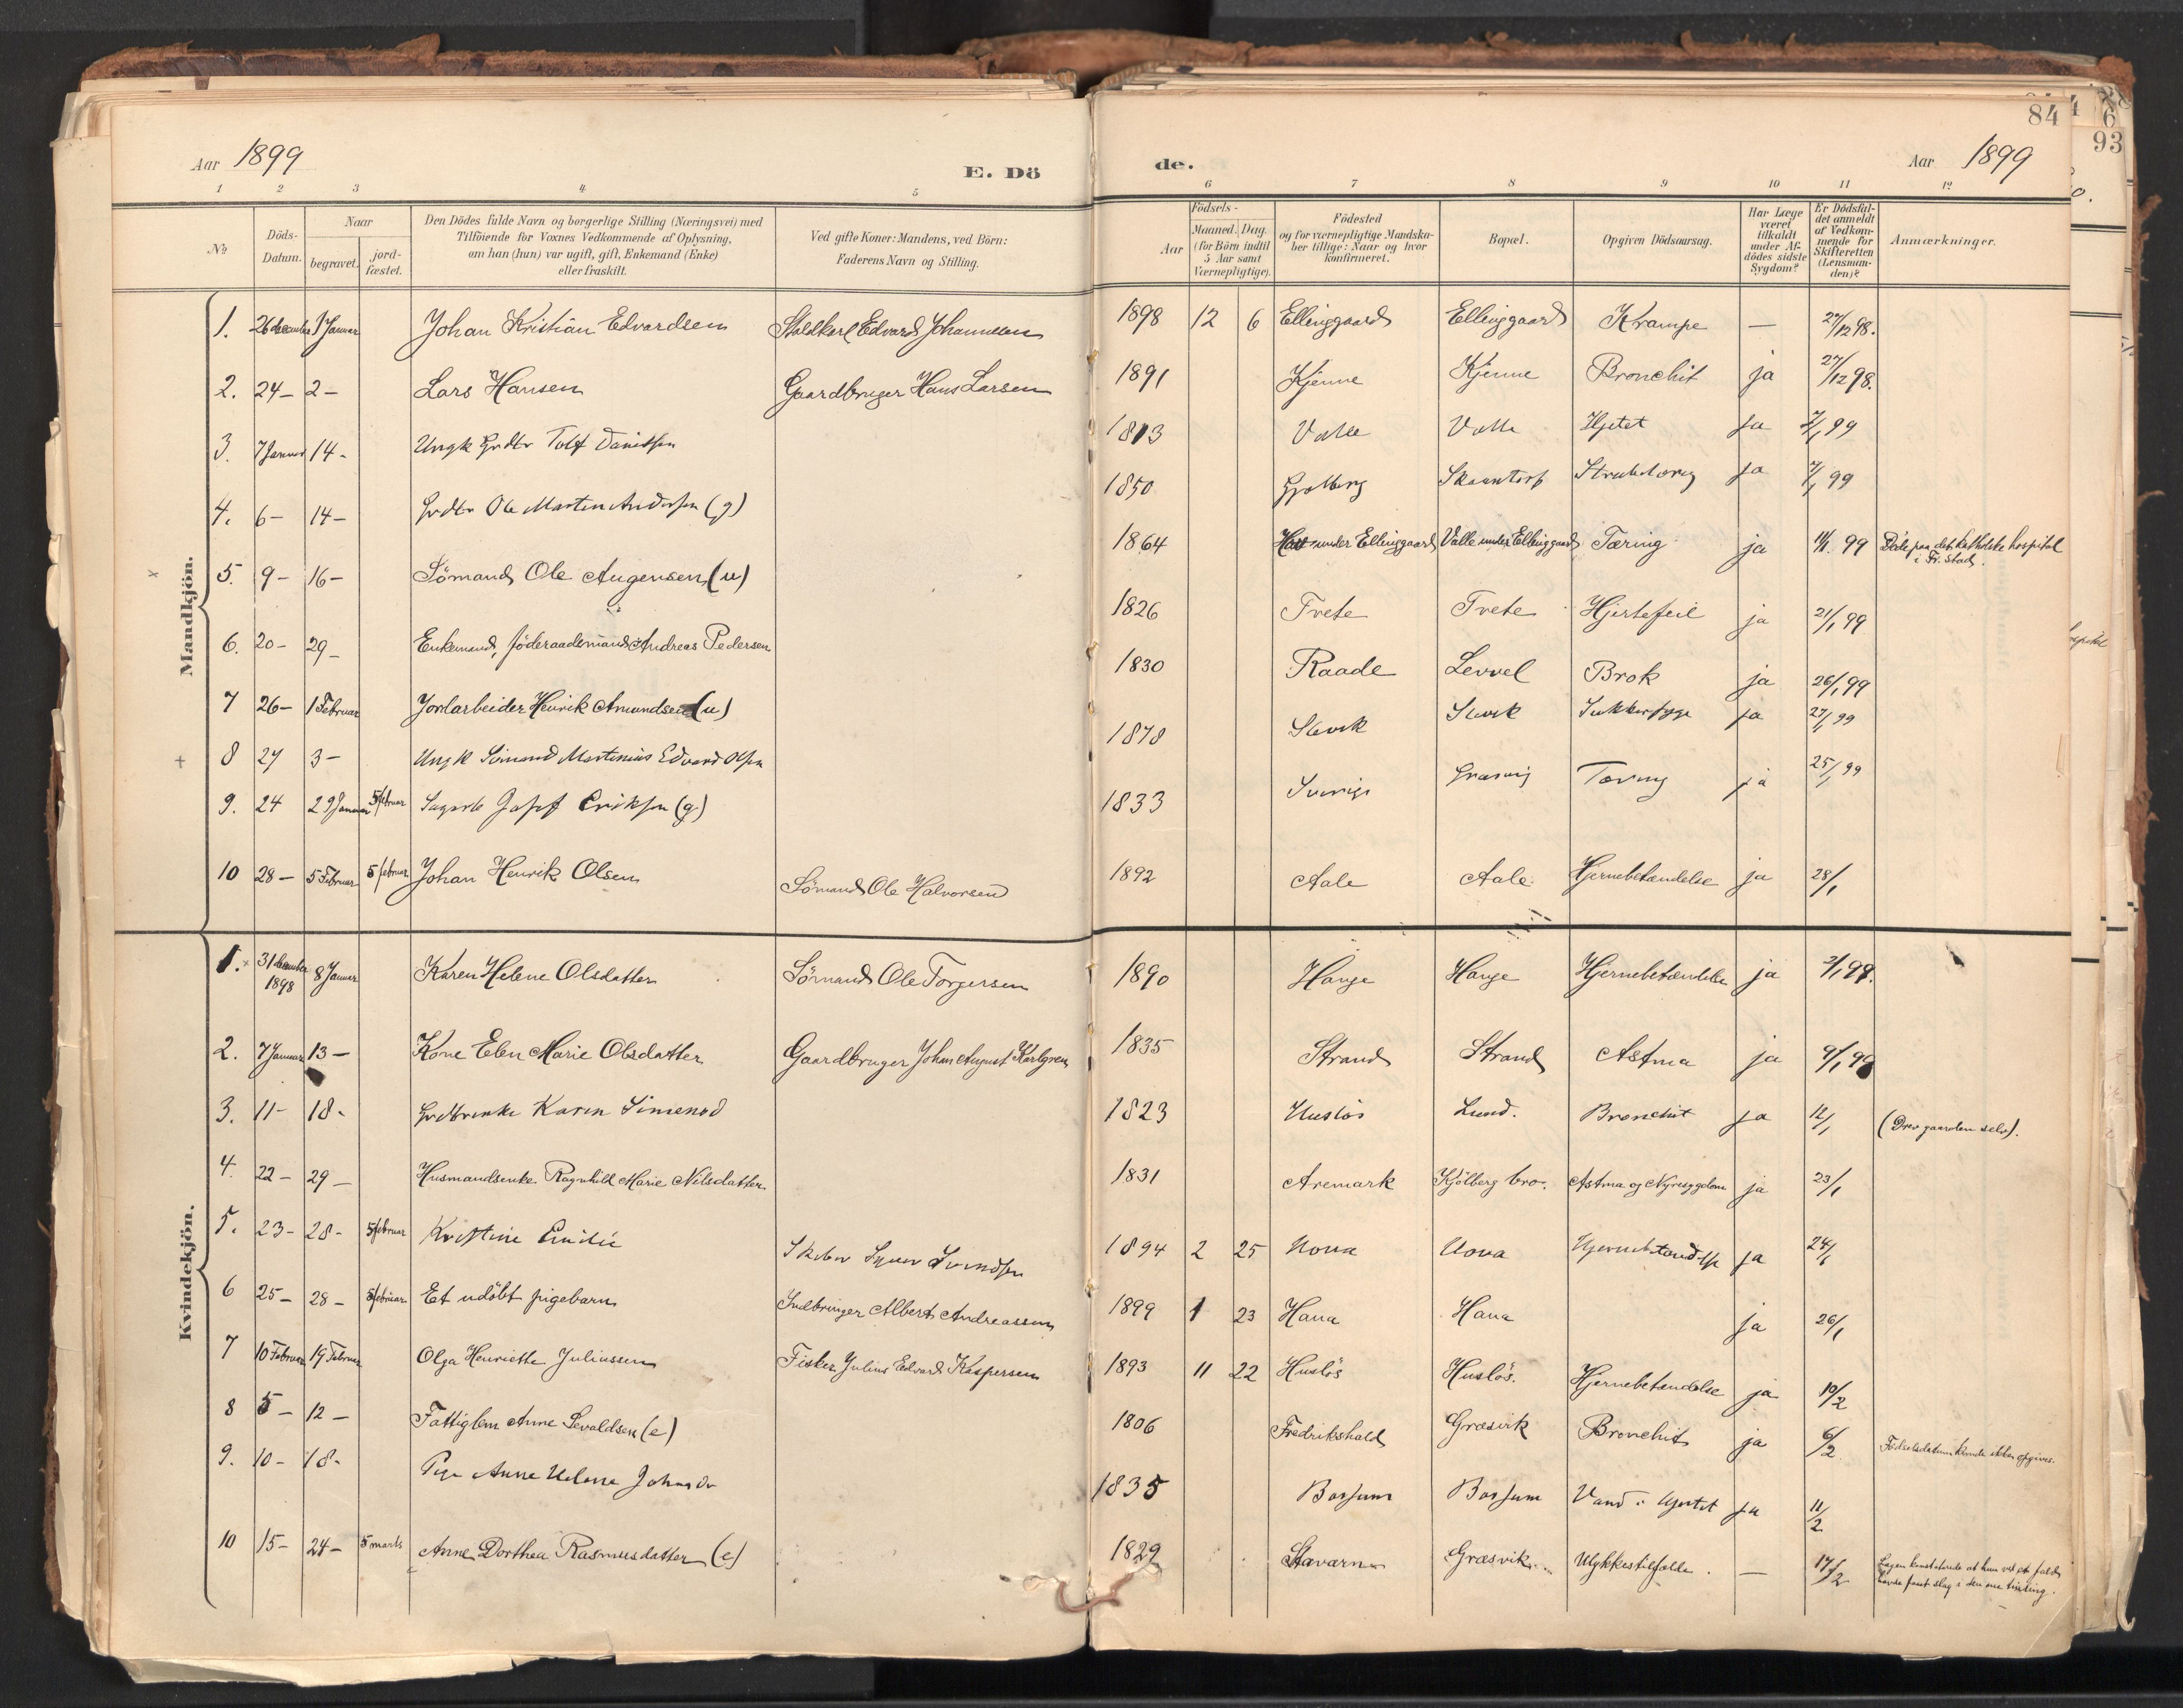 84
93
Aar 1899
E. Dö
de.
Aar 1899
1 2 3 4 5 6 7 8 9 10 11 12
№
Döds-Datum.
Naar
begravet.
jord-fæstet.
Den Dödes fulde Navn og borgerlige Stilling (Næringsvei) med
Tilföiende for Voxnes Vedkommende af Oplysning,
om han (hun) var ugift, gift, Enkemand (Enke)
eller fraskilt.
Ved gifte Koner: Mandens, ved Börn:
Faderens Navn og Stilling.
Födsels-
Aar
Maaned. Dag.
(for Börn indtil
5 Aar samt
Værnepligtige).
Födested
og for værnepligtige Mandska-
ber tillige: Naar og hvor
konfirmeret.
Bopæl.
Opgiven Dödsaarsag.
Har Læge
været
tilkaldt
under Af-
dödes sidste
Sygdom?
Er Dödsfal-
det anmeldt
af Vedkom-
mende for
Skifteretten
(Lensman-
den)?
Anmærkninger.
Mandkjön.
1. 26 december 1 Januar Johan Kristian Edvardsen Staldkarl Edvard Johannesen 1898 12 6 Ellinggaard Ellinggaard Krampe — 27/12 98.
2. 24 – 2 – Lars Hansen Gaardbruger Hans Larsen 1891 Kjenne Kjenne Bronchit ja 27/12 98.
3. 7 Januar 14 – Ungk Grdbr 1813 Valle Valle Hjertet ja 99
4. 6 – 14 – Grdbr Ole Martin Andersen (g) 1850 ja 99
5. 9 – 16 – Sömand Ole Augensen (u) 1864 under Ellinggaard Valle under Ellinggaard Tæring ja 11/1 99 Döde paa det katholske hospital
i Fr.stad.
6. 20 – 29 – Enkemand, föderaadsmand Andreas Pedersen 1826 Trete Trete Hjertefeil ja 21/1 99
7 26 – 1 Februar Jordarbeider Henrik Amundsen (u) 1830 Raade Levvel Brok ja 26/1 99
8 27 3 – Ungk Sömand Martinius Edvard Olsen 1878 Slevik Slevik Sukkersyge ja 27/1 99
9. 24 29 Januar 5 februar Josef Eriksen (g) 1833 Sverige Græsvig Tæring ja 25/1 99
10 28 – 5 Februar 5 februar Johan Henrik Olsen Sömand Ole Halvorsen 1892 Aale Aale Hjernebetændelse ja 28/1
Kvindekjön.
1. 31 december 1898 8 Januar Karen Helene Olsdatter Sömand Ole Torgersen 1890 Hauge Hauge Hjernebetændelse ja 2/1 99.
2. 7 Januar 13 – Kone Elen Marie Olsdatter Gaardbruger Johan August Karlgren 1835 Strand Strand Astma ja 9/1 99
3. 11 – 18 – Grdbrenke Karen Simensd 1823 Huslös Lund. Bronchit ja 12/1 (Drev gaarden selv).
4. 22 – 29 – Husmandsenke Ragnhild Marie Nilsdatter 1831 Aremark Kjölberg bro. Astma og Nyresygdom ja 23/1
5. 23 – 28 – 5 februar Kristine Emilie Svendsen 1894 2 25 Hjernebetændelse ja 24/1
6 25 – 28 – 5 februar Et udöbt pigebarn Indbringer Albert Andreassen 1899 1 23 Hana Hana ja 26/1
7 10 Februar 19 Februar Olga Henriette Juliussen Fisker Julius Edvard Kaspersen 1893 11 22 Huslös Huslös. Hjernebetændelse ja 10/2
8 5 – 12 – Fattiglem Anne Sevaldsen (e) 1806 Fredrikshald Græsvik Bronchit ja 6/2 Födselsdatum kunde ikke opgives.
9. 10 – 18 – Pige Anne Helene Johnsdr 1835 Borsum Borsum Vand i Hjertet ja 11/2
10 15 – 24 – 5 marts Anne Dorthea Rasmusdatter (e) 1829 Staværn Græsvik Ulykkestilfælde. — 17/2 Lægen konstaterede at hun ved et fald
havde faaet slag i den ene tinding.